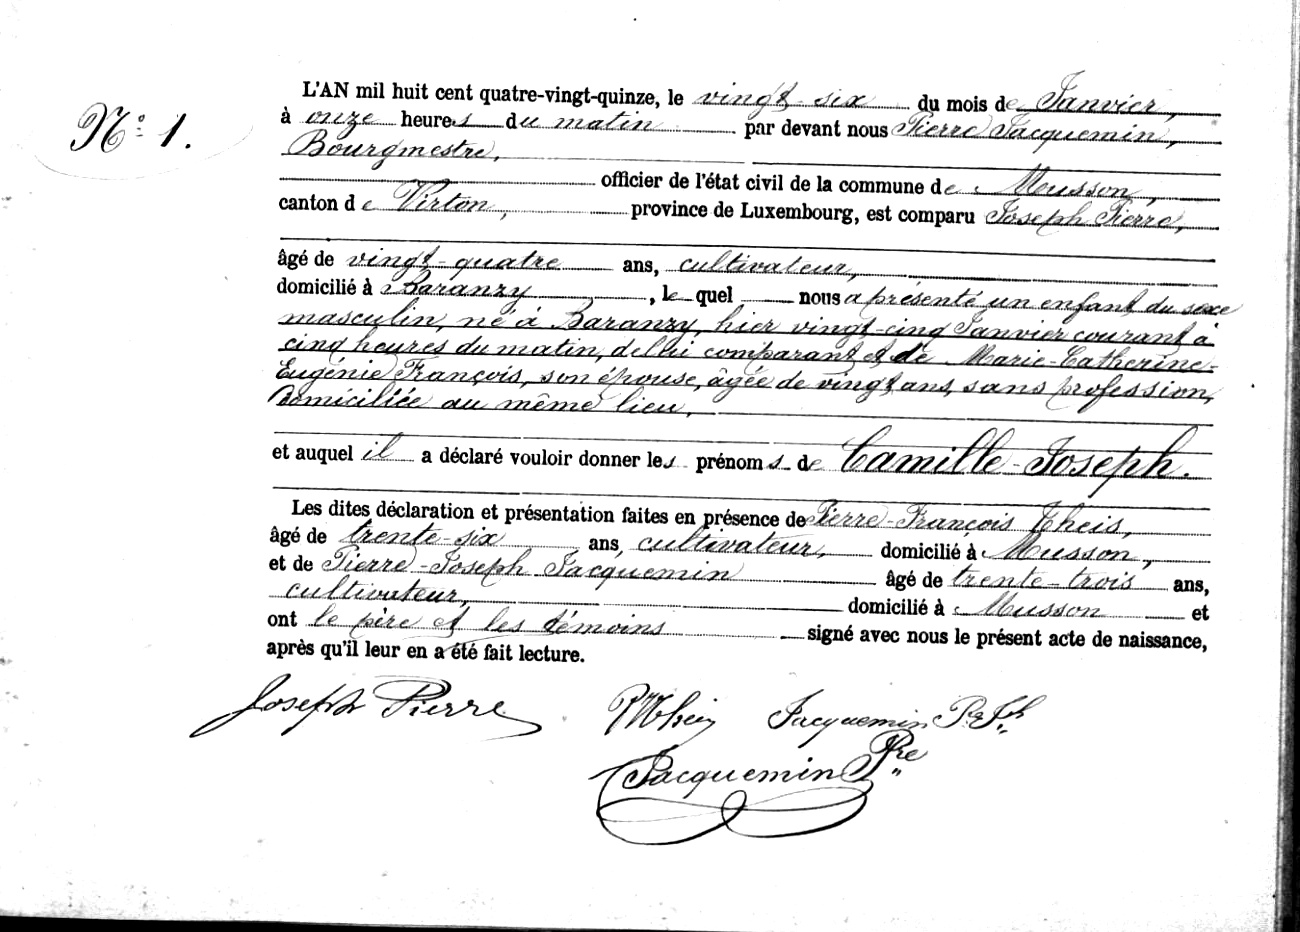 N.º 1.
L'AN mil huit cent quatre-vingt-quinze, le vingt-six du mois de Janvier,
à onze heures du matin par devant nous Pierre Jacquemin,
Bourgmestre,
officier de l'état civil de la commune de Musson,
canton de Virton, province de Luxembourg, est comparu Joseph Pierre,
âgé de vingt-quatre ans, cultivateur,
domicilié à Baranzy, le quel nous a présenté un enfant du sexe
masculin, né à Baranzy, hier vingt-cinq Janvier courant à
cinq heures du matin, de lui comparant et de Marie-Catherine-
Eugénie François, son épouse, âgée de vingt ans, sans profession,
domiciliée au même lieu,
et auquel il a déclaré vouloir donner les prénoms de Camille-Joseph.
Les dites déclaration et présentation faites en présence de Pierre-François Theis,
âgé de trente-six ans, cultivateur, domicilié à Musson,
et de Pierre-Joseph Jacquemin âgé de trente-trois ans,
cultivateur, domicilié à Musson et
ont le père et les témoins signé avec nous le présent acte de naissance,
après qu'il leur en a été fait lecture.
Joseph Pierre Theis Jacquemin P.e J.ph
Jacquemin P.re